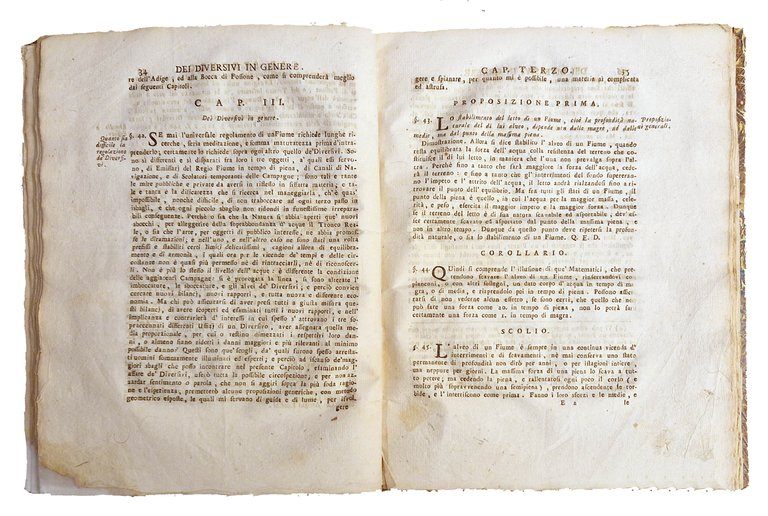 34 DEI DIVERSIVI IN GENERE.
re dell'Adige, ed alla Bocca di Fosione, come si comprenderà meglio
dai seguenti Capitoli.
CAP. III.
Dei Diversivi in genere.
Quanto sia
difficile la
regolazione
de' Diversivi.
§. 42. SE mai l'universale regolamento di un Fiume richiede lunghe ricerche,
seria meditazione, e somma maturatezza prima d'intraprenderlo;
certamente lo richiede sopra ogni altro quello de' Diversivi. Sono
sì differenti e sì disparati fra loro i tre oggetti, a' quali essi servono,
di Emissarj del Regio Fiume in tempo di piena, di Canali di Navigazione,
e di Scolatori temporanei delle Campagne; sono tali e tante
le mire pubbliche e private da aversi in riflesso in sifatta materia, e tale
e tanta è la dilicatezza che si ricerca nel maneggiarla, ch'è quasi
impossibile, nonchè difficile, di non traboccare ad ogni terzo passo in
isbagli, e che ogni piccolo sbaglio non ridondi in funestissime irreparabili
conseguenze. Perchè o sia che la Natura si abbia aperti que' nuovi
sbocchi, per alleggerire della soprabbondanza d'acque il Tronco Reale,
o sia che l'arte, per oggetti di pubblico interesse, ne abbia promosse
le diramazioni; e nell'uno, e nell'altro caso ne sono stati una volta
prefissi e stabiliti certi limiti delicatissimi, cagioni allora di equilibrio
e di armonia, i quali ora per le vicende de' tempi e delle circostanze
non è quasi più permesso nè di rintracciarli, nè di riconoscerli.
Non è più lo stesso il livello dell'acque: è differente la condizione
delle aggiacenti Campagne: si è prorogata la linea, si sono alterate l'
imboccature, le sboccature, e gli alvei de' Diversivi; e perciò convien
cercare nuovi bilancj, nuovi rapporti, e tutta nuova e differente economia.
Ma chi può assicurarsi di aver presi tutti a giusta misura questi
bilancj, di avere scoperti ed esaminati tutti i nuovi rapporti, e nell'
implicanza e contrarietà d'interessi in cui spesso s'attrovano i tre sopraccennati
differenti Ufficj di un Diversivo, aver assegnata quella media
proporzionale, per cui o restino dimezzati i respettivi loro danni,
o almeno siano ridotti i danni maggiori e più rilevanti al minimo
possibile danno? Questi sono que' scogli, da' quali furono spesso arrestati
uomini sommamente illuminati ed esperti; e perciò ad issanso de' maggiori
sbagli che posso incontrare nel presente Capitolo, esaminando l'
affare de' Diversivi, userò tutta la possibile circospezione, e per non azzardar
sentimento o parola, che non si aggiri sopra la più soda ragione
e l'esperienza, premetterò alcune proposizioni generiche, con metodo
geometrico esposte, le quali mi servano di guide e di lume, per isvolgere
CAP. TERZO. 35
gere e spianare, per quanto mi è possibile, una materia sì complicata
ed astrusa.
PROPOSIZIONE PRIMA.
§. 43. LO stabilimento del letto di un Fiume, cioè la profondità naturale
del di lui alveo, dipende non dalle magre, ed dalle
medie, ma dal punto della massima piena.
Proposizioni
generali.
Dimostrazione. Allora si dice stabilito l'alveo di un Fiume, quando
resta equilibrata la forza dell'acqua colla resistenza del terreno che costituisce
il di lui letto, in maniera che l'una non prevalga sopra l'altra.
Perchè fino a tanto che sarà maggiore la forza dell'acqua, cederà
il terreno: e fino a tanto che gl'interrimenti del fondo supereranno
l'impeto e l'attrito dell'acqua, il letto andrà rialzandosi fino a ritrovare
il punto dell'equilibrio. Ma fra tutti gli stati di un Fiume, il
punto della piena è quello, in cui l'acqua per la maggior massa, celerità,
e peso, esercita il maggior impeto e la maggior forza. Dunque
se il terreno del letto è di sua natura scavabile ed asportabile, dev'essere
certamente scavato ed asportato dal punto della massima piena, e
non in altro tempo. Dunque da questo punto deve ripetersi la profondità
naturale, o sia lo stabilimento di un Fiume. Q. E. D.
COROLLARIO.
§. 44. QUindi si comprende l'illusione di que' Matematici, che pretendono
scavare l'alveo di un Fiume, rinserrandovi con
penelli, o con altri sostegni, un dato corpo d'acqua in tempo di magra,
o di media, e riaprendolo poi in tempo di piena. Possono assicurarsi
di non vederne alcun effetto, se sono certi, che quello che non
può fare una forza come 20. in tempo di piena, non lo potrà far
certamente una forza come 12. in tempo di magra.
SCOLIO.
§. 45. L'alveo di un Fiume è sempre in una continua vicenda d'
interrimenti e di scavamenti, nè mai conserva uno stato
permanente di profondità non dirò per anni, o per istagioni intiere,
ma neppure per giorni. La massima forza di una piena lo scava a tutto
potere, ma cedendo la piena, e rallentatosi ogni poco il corso (e
molto più sopravvenendo una semipiena), prendono ascendente le torbide,
e l'interriscono come prima. Fanno i loro sforzi e le medie, e
E 2 le